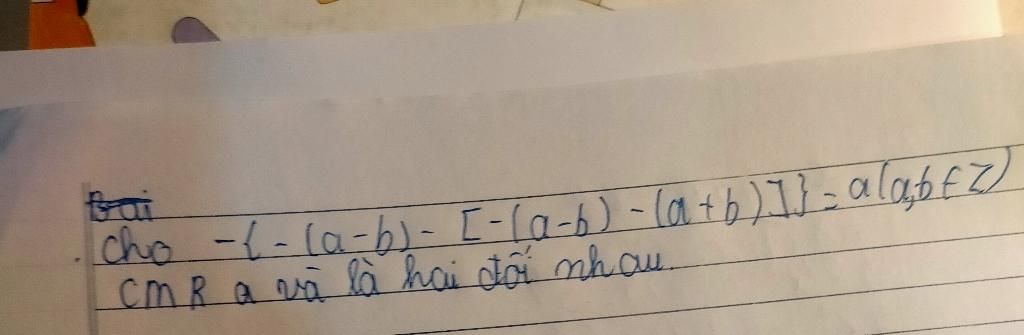 Bài
Cho -{-(a-b)-[-(a-b)-(a+b)]}=a(a,b∈Z)
CMR a và là hai đối nhau.